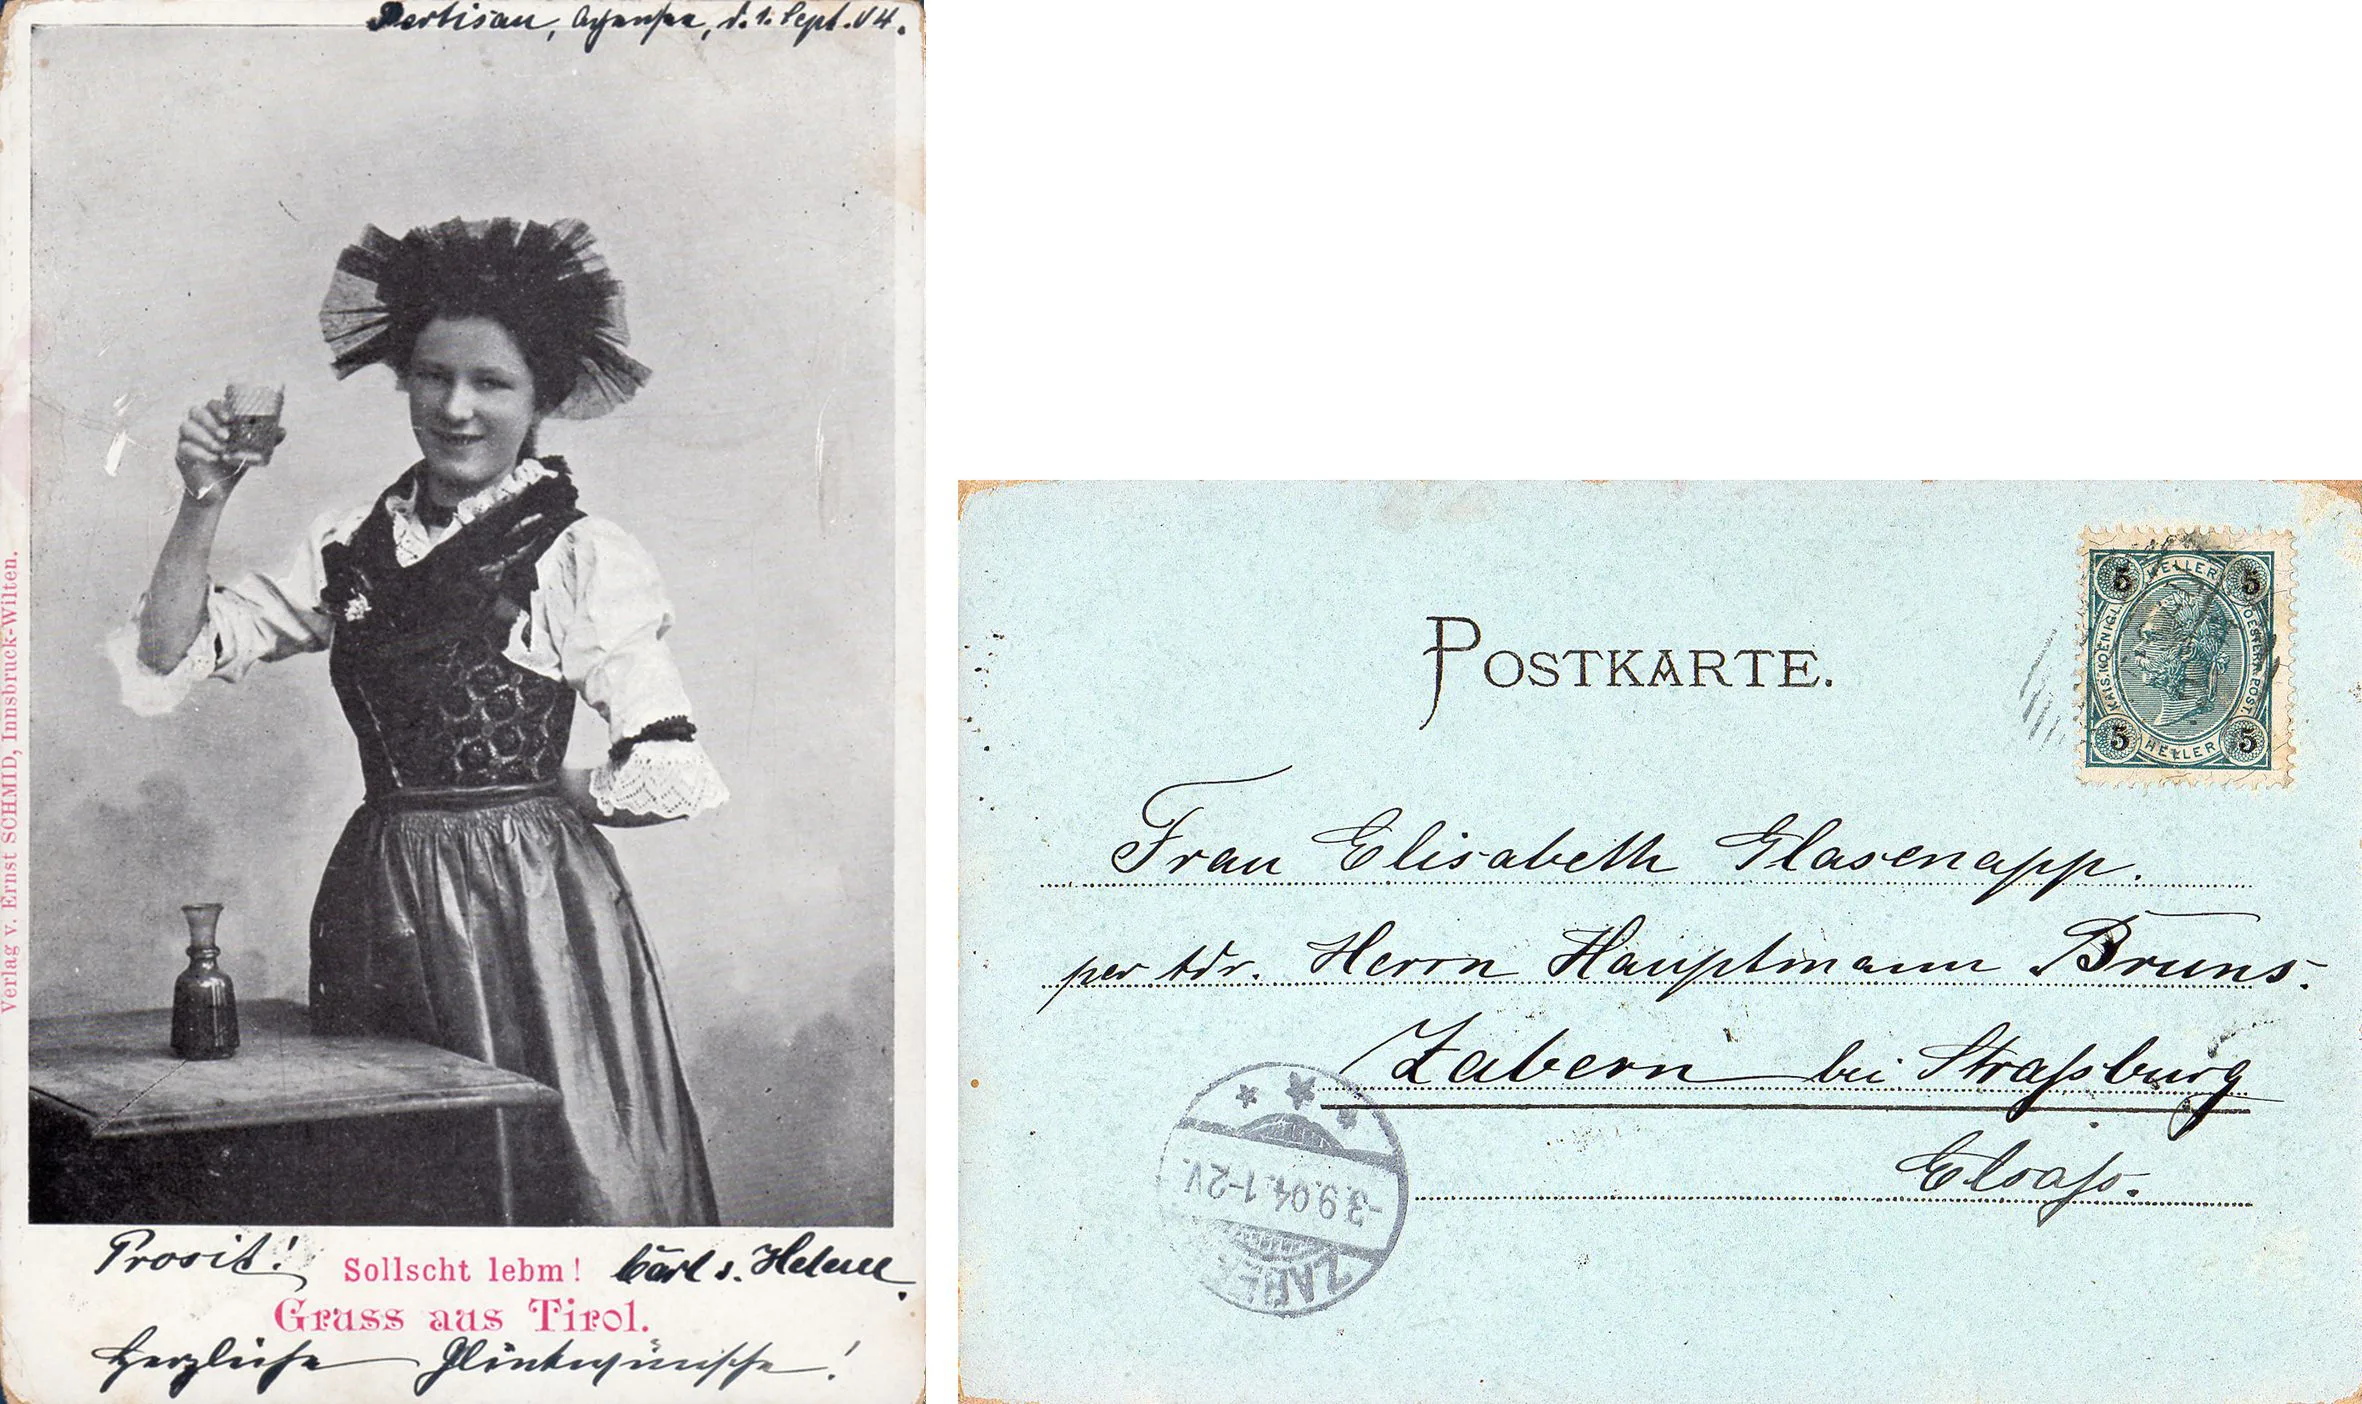 Pertisau, Achensee, d. 1. Sept. 04.
Verlag v. Ernst SCHMID, Innsbruck-Wilten.
Prosit!
Sollscht lebm!
Carl u. Helene.
Gruss aus Tirol.
Herzliche Glückwünsche!
POSTKARTE.
5 HELLER 5
KAIS. KOENIGL. OESTERR. POST.
5 HELLER 5
Frau Elisabeth Glasenapp.
per Adr. Herrn Hauptmann Bruns.
Zabern bei Straßburg
Elsaß.
ZABERN
-3.9.04.1-2V.